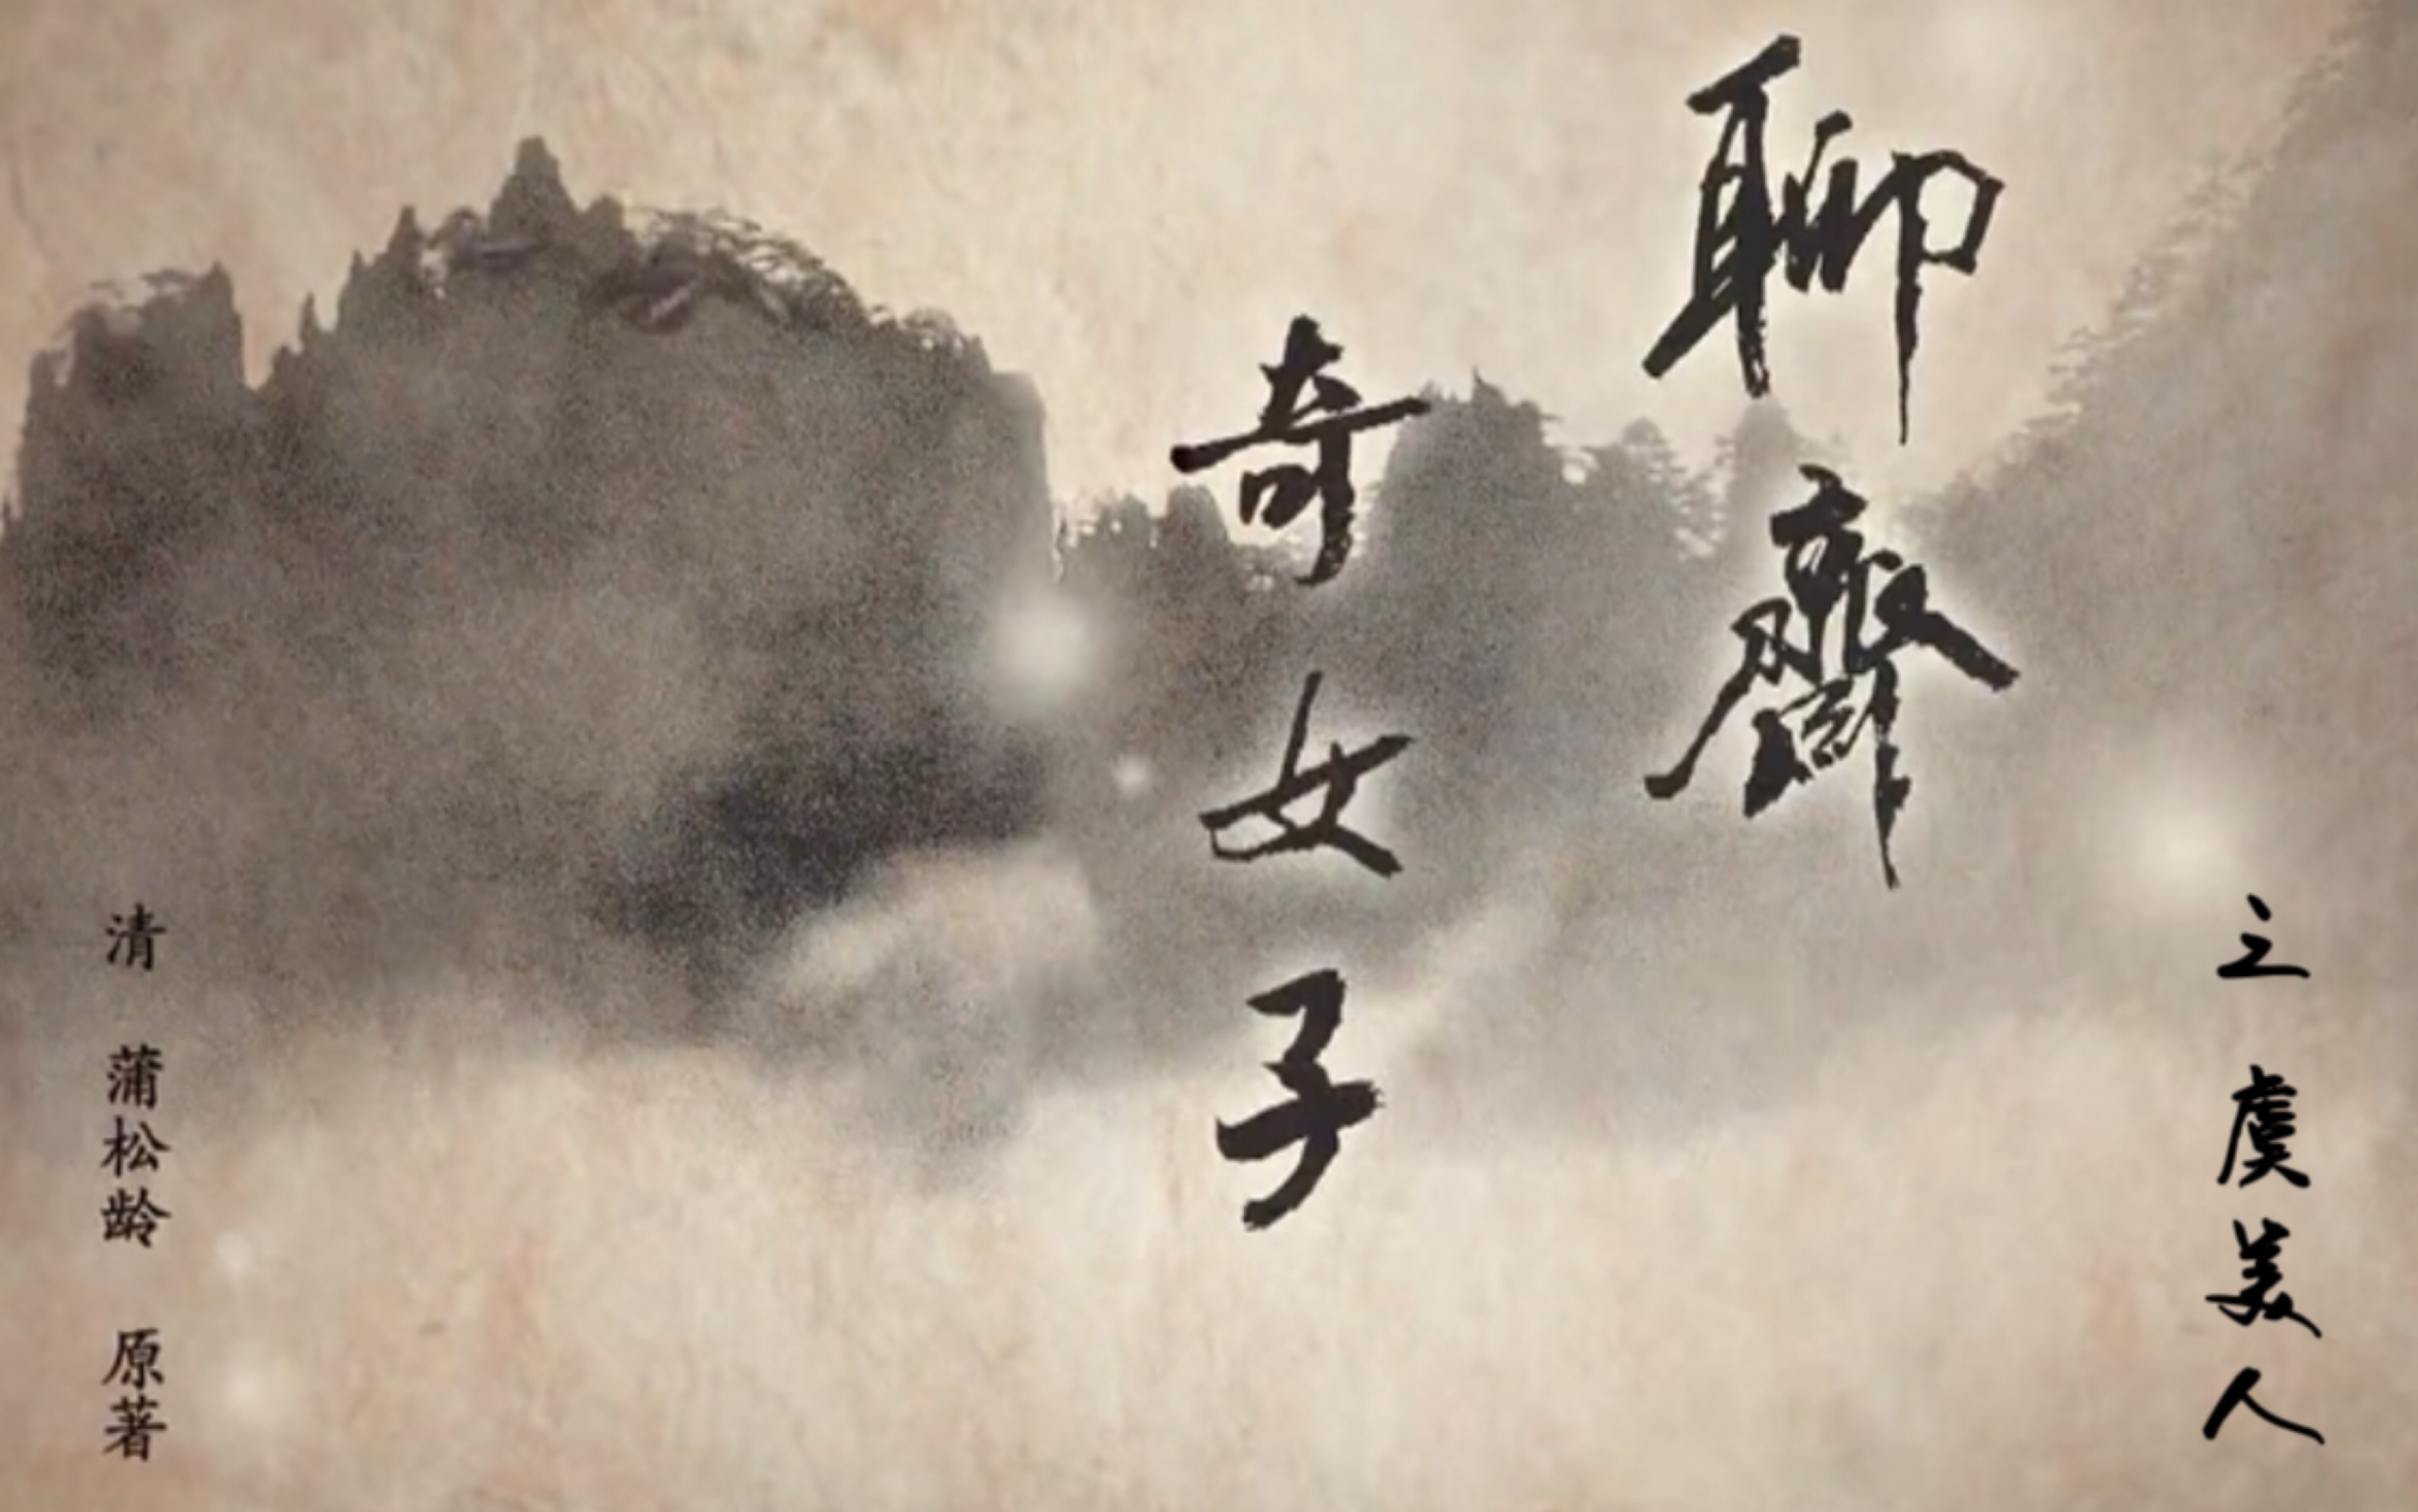 聊齋
奇女子
之 虞美人
清 蒲松龄 原著